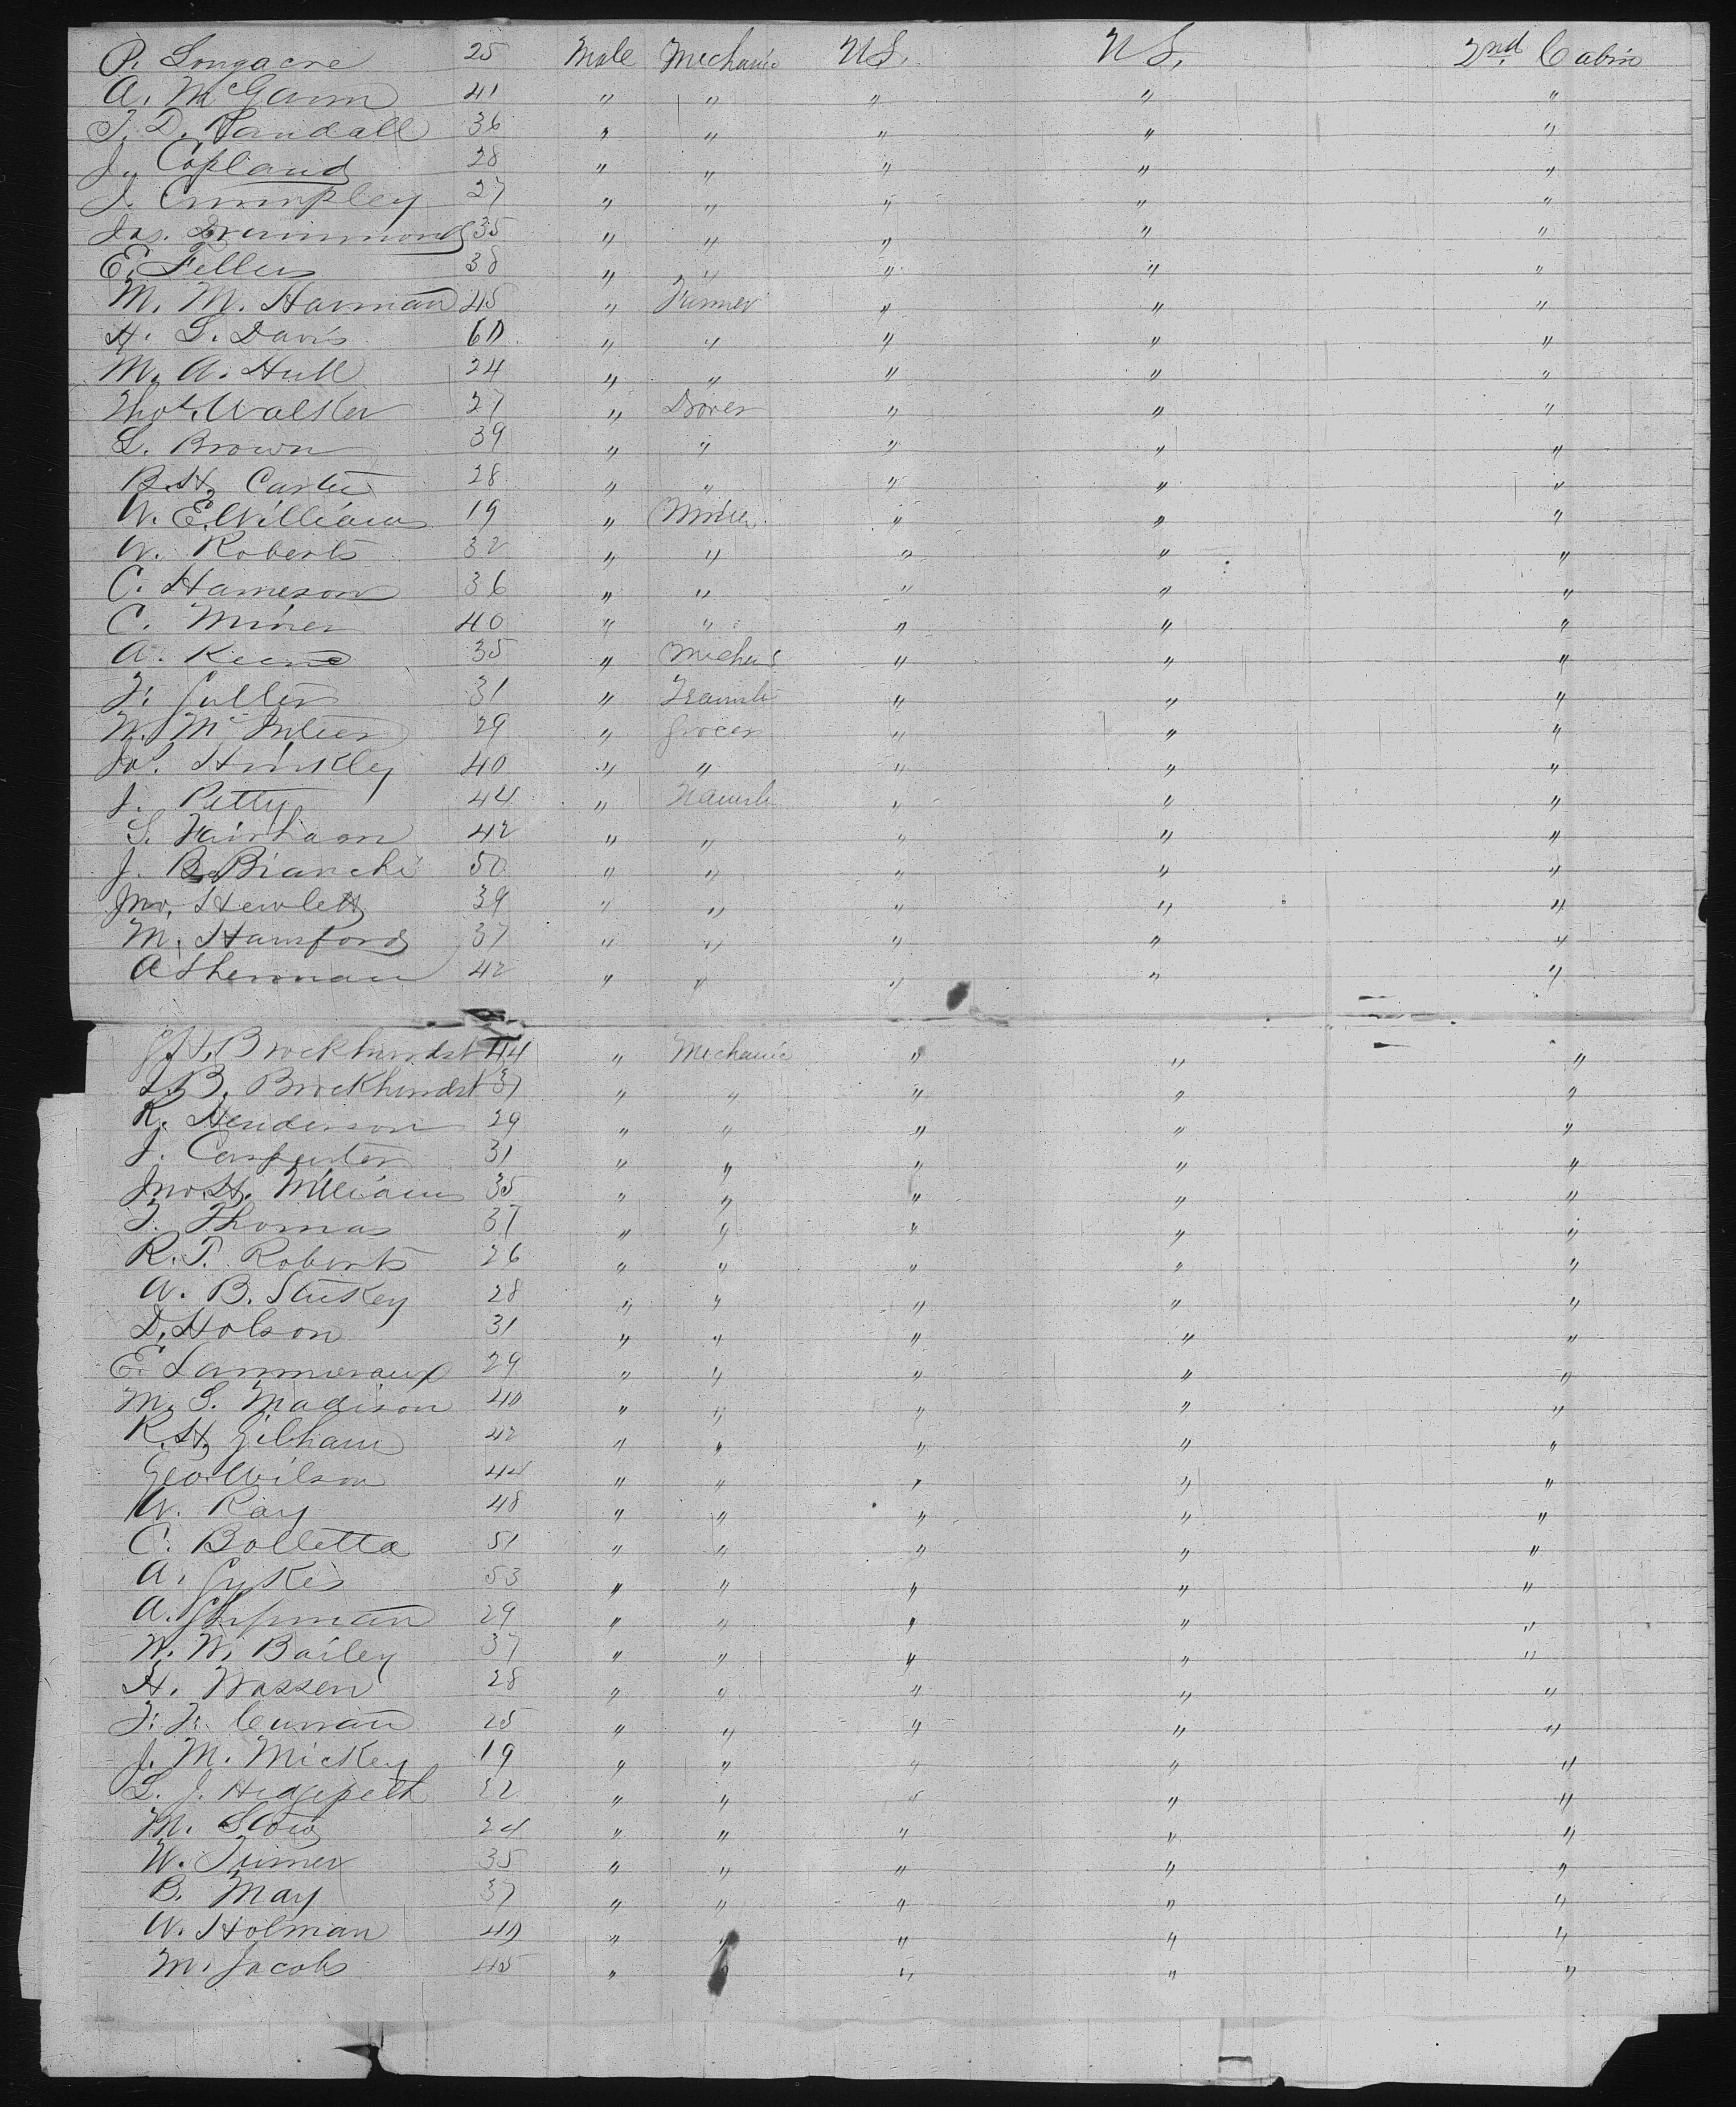 P. Longacre 25 Male Mechanic U S. U S. 2nd Cabin
A. McGann 41 " " " " "
T. D. Randall 36 " " " " "
J. Copland 28 " " " " "
J. Crumpley 27 " " " " "
Jas. Drummond 35 " " " " "
E. Fellers 38 " " " " "
M. M. Harman 45 " Farmer " " "
H. L. Davis 60 " " " " "
M. A. Hull 24 " " " " "
Thos. Walker 27 " Drover " " "
L. Brown 39 " " " " "
B. H. Carter 28 " " " " "
W. E. Williams 19 " Miner " " "
W. Roberts 32 " " " " "
C. Hameson 36 " " " " "
C. Miner 40 " " " " "
A. Keene 35 " " " "
F. 31 " " " "
W. 29 " Grocer " " "
Jas. Hinkley 40 " " " " "
J. Petty 44 " " " "
S. 42 " " " " "
J. B. Bianchi 50 " " " " "
Jno. Hewlett 39 " " " " "
M. Hansford 37 " " " " "
A Sherman 42 " " " " "
Brockhurdst 44 " Mechanic " " "
B. Brockhurdst 37 " " " " "
R. Henderson 29 " " " " "
J. Carpenter 31 " " " " "
Jno. H. Williams 35 " " " " "
T. Thomas 37 " " " " "
R. T. Roberts 26 " " " " "
W. B. Stukey 28 " " " " "
D. Holson 31 " " " " "
E. Lammoraux 29 " " " " "
M. S. Madison 40 " " " " "
R. H. Gilham 42 " " " " "
Geo. Wilson 44 " " " " "
W. Ray 48 " " " " "
C. Bolletta 51 " " " " "
A. Sykes 53 " " " " "
A. Shipman 29 " " " " "
W. W. Bailey 37 " " " " "
H. Wassen 28 " " " " "
F. F. Curran 25 " " " " "
J. M. Mickey 19 " " " " "
L. J. Hedgepeth 22 " " " " "
M. Stow 24 " " " " "
W. Turner 35 " " " " "
B. May 37 " " " " "
W. Holman 40 " " " " "
M. Jacobs 45 " " " "